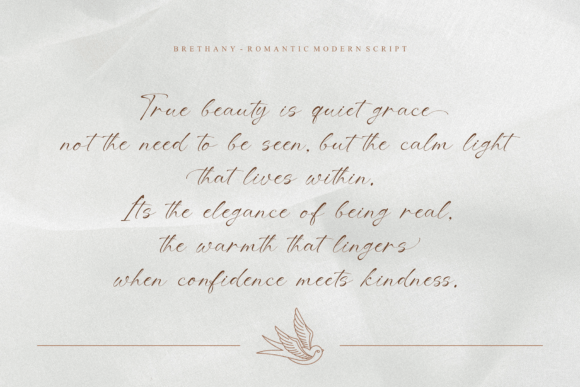 BRETHANY - ROMANTIC MODERN SCRIPT
True beauty is quiet grace
not the need to be seen. but the calm light
that lives within.
Its the elegance of being real.
the warmth that lingers
when confidence meets kindness.